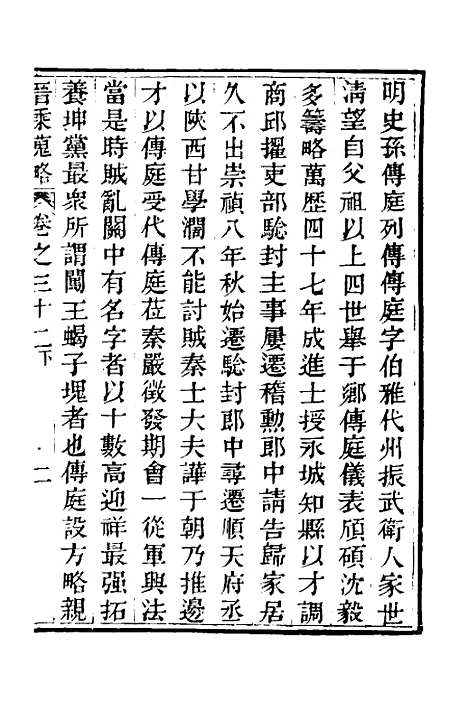 明史孫傳庭列傳傳庭字伯雅代州振武衛人家世
淸望自父祖以上四世舉于鄉傳庭儀表頎碩沈毅
多籌略萬歷四十七年成進士授永城知縣以才調
商邱擢吏部驗封主事屢遷稽勲郎中請告歸家居
久不出崇禎八年秋始遷驗封郎中尋遷順天府丞
以陝西甘學濶不能討賊秦士大夫譁于朝乃推邊
才以傳庭受代傳庭莅秦嚴徵發期會一從軍興法
當是時賊亂關中有名字者以十數高迎祥最强拓
養坤黨最衆所謂闖王蝎子塊者也傳庭設方略親
晉乘蒐略卷之三十二下 二